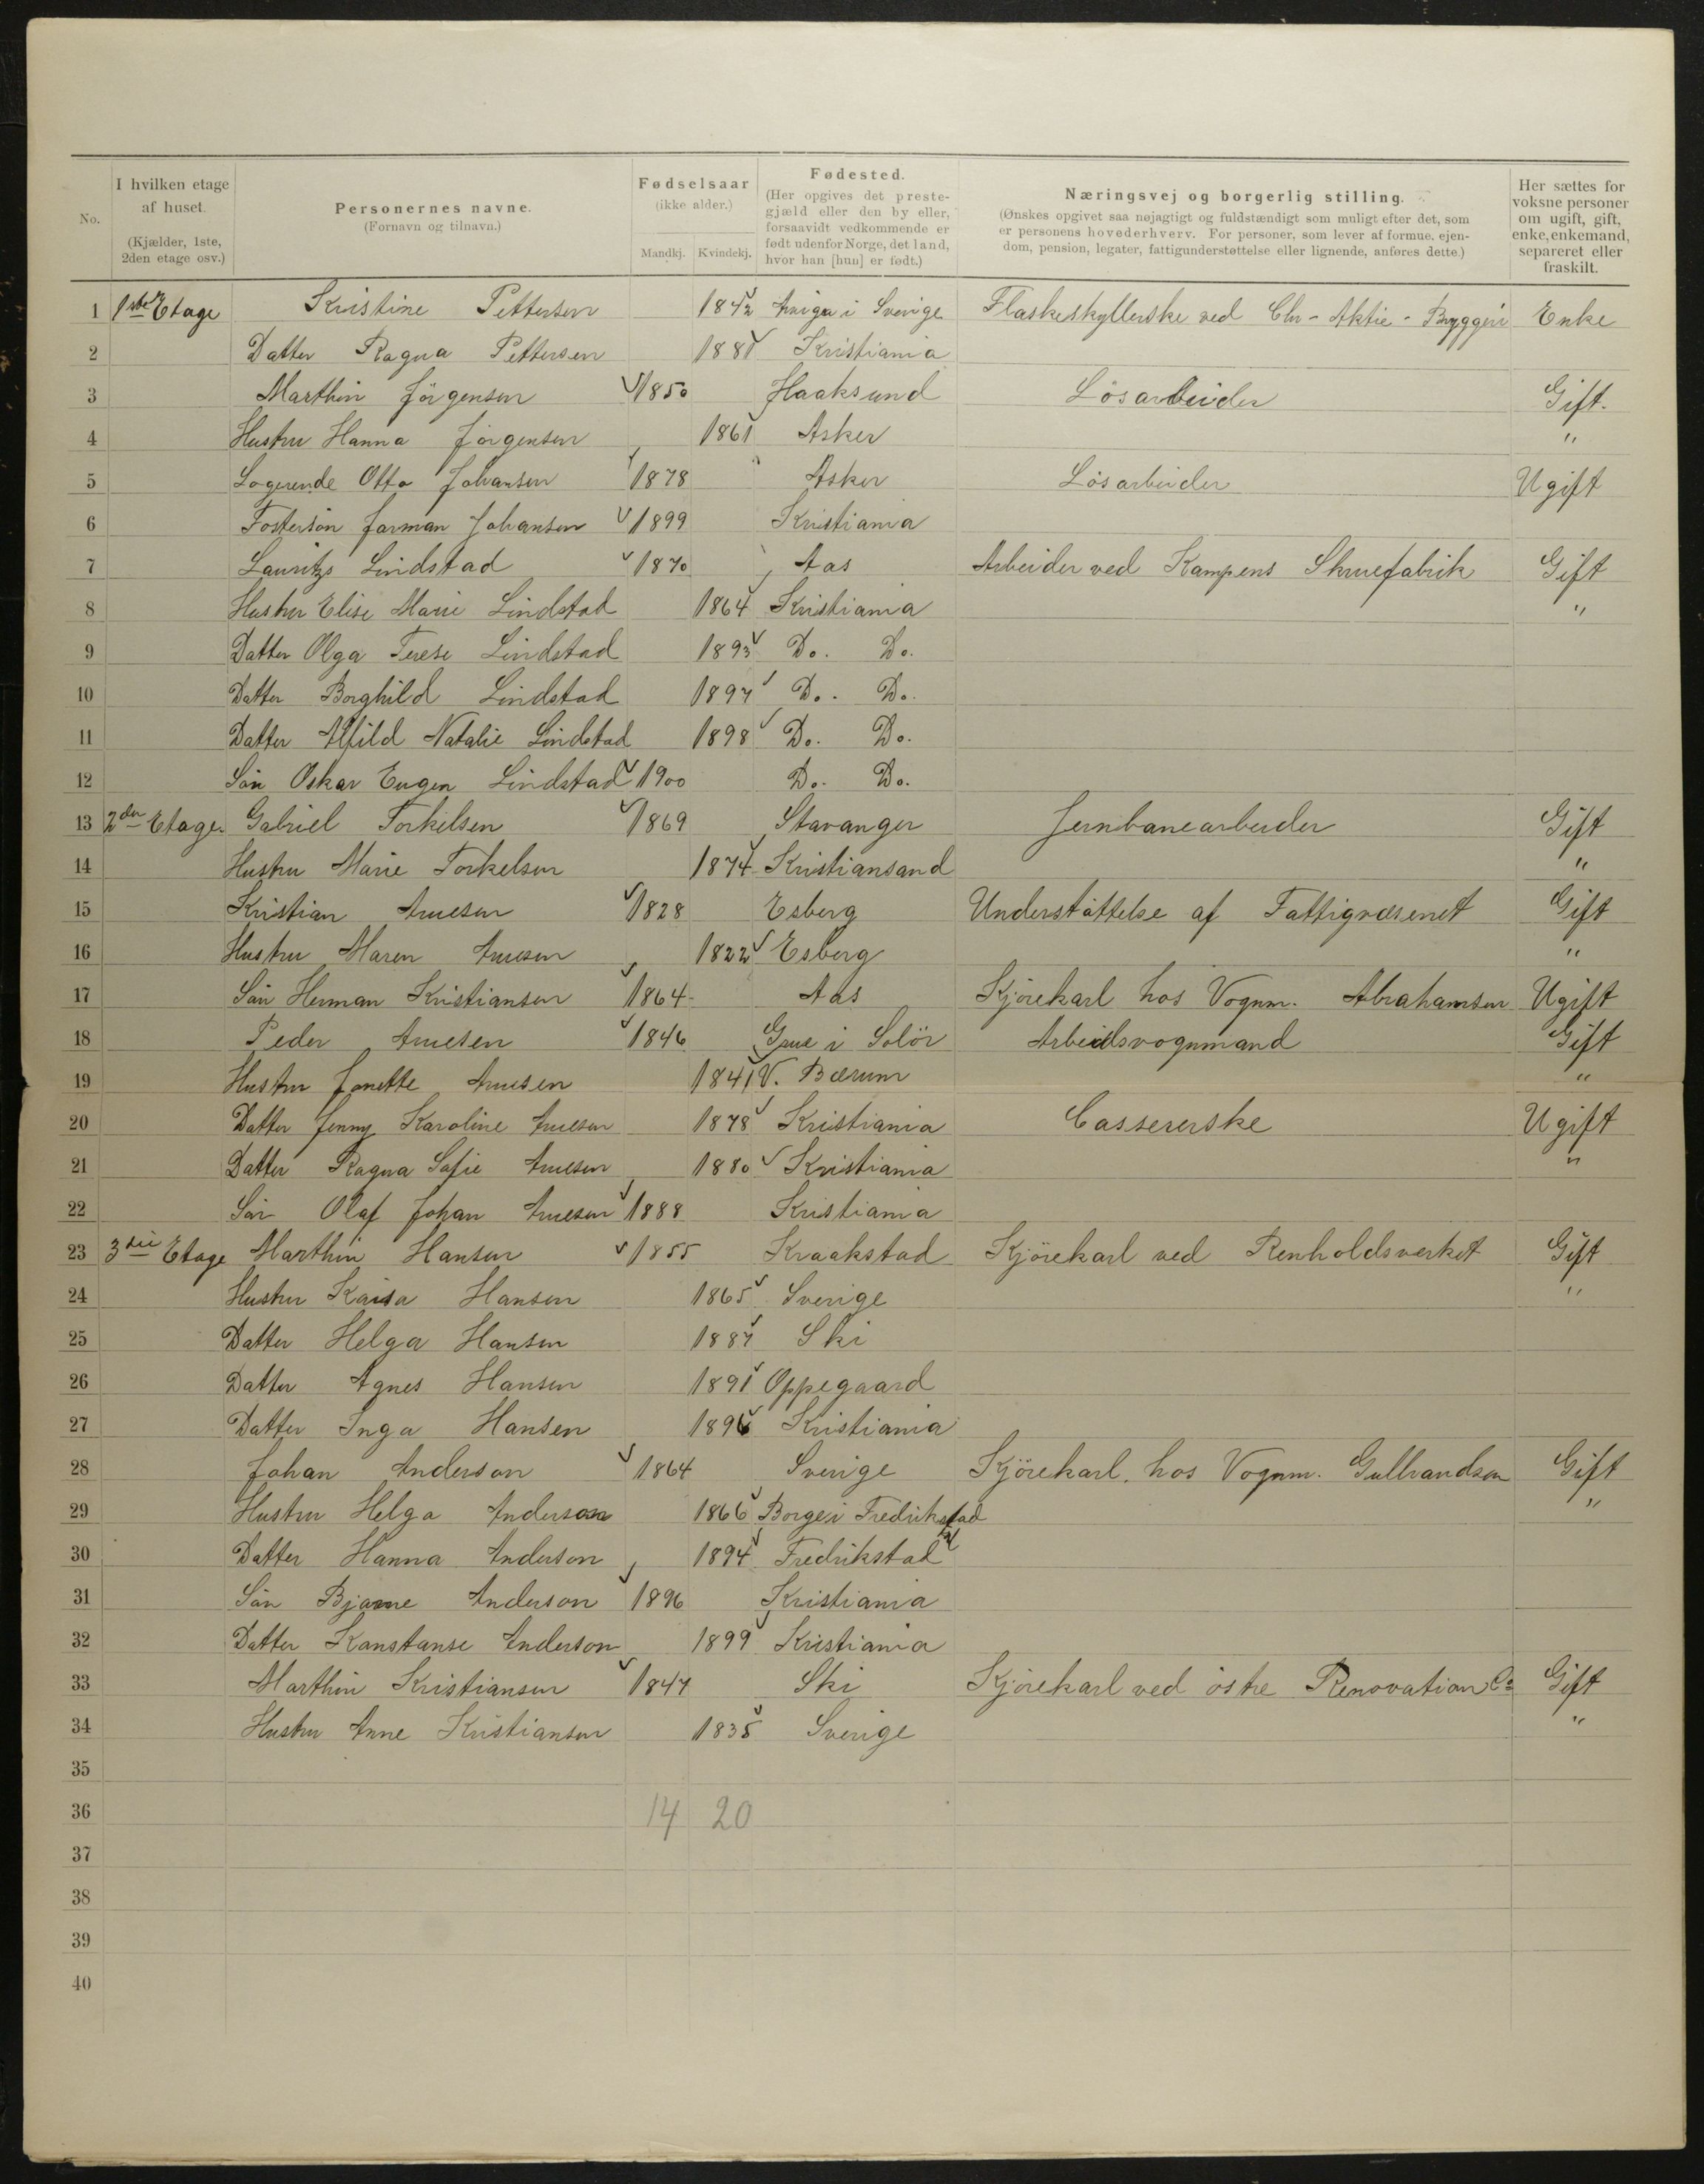 No.
I hvilken etage af huset. (Kjælder, 1ste, 2den etage osv.)
Personernes navne. (Fornavn og tilnavn.)
Fødselsaar (ikke alder.) Mandkj. Kvindekj.
Fødested. (Her opgives det prestegjæld eller den by eller, forsaavidt vedkommende er født udenfor Norge, det land, hvor han [hun] er født.)
Næringsvej og borgerlig stilling. (Ønskes opgivet saa nøjagtigt og fuldstændigt som muligt efter det, som er personens hovederhverv. For personer, som lever af formue, ejendom, pension, legater, fattigunderstøttelse eller lignende, anføres dette.)
Her sættes for voksne personer om ugift, gift, enke, enkemand, separeret eller fraskilt.
1 1ste Etage Kristine Pettersen 1842 i Sverige Flaskeskyllerske ved Chr-Aktie-Bryggeri Enke
2 Datter Ragna Pettersen 1881 Kristiania
3 Marthin Jörgensen 1850 Haaksund Lösarbeider Gift.
4 Hustru Hanna Jörgensen 1861 Asker "
5 Logerende Otto Johansen 1878 Asker Lösarbeider Ugift
6 Fostersön Jarman Johansen 1899 Kristiania
7 Lauritz Lindstad 1870 Aas Arbeider ved Kampens Skruefabrik Gift
8 Hustru Elise Marie Lindstad 1864 Kristiania "
9 Datter Olga Terese Lindstad 1893 Do. Do.
10 Datter Borghild Lindstad 1897 Do. Do.
11 Datter Alfild Natalie Lindstad 1898 Do. Do.
12 Sön Oskar Eugen Lindstad 1900 Do. Do.
13 2den Etage. Gabriel Torkelsen 1869 Stavanger Jernbanearbeider Gift
14 Hustru Marie Torkelsen 1874 Kristiansand "
15 Kristian Arnesen 1828 Esberg Understöttelse af Fattigvæsenet Gift
16 Hustru Maren Arnesen 1822 Esberg "
17 Sön Herman Kristiansen 1864 Aas Kjörekarl hos Vognm. Abrahamsen Ugift
18 Peder Arnesen 1846 Grue i Solör Arbeidsvognmand Gift
19 Hustru Jonette Arnesen 1841 V. Bærum "
20 Datter Jenny Karoline Arnesen 1878 Kristiania Cassererske Ugift
21 Datter Ragna Sofie Arnesen 1880 Kristiania "
22 Sön Olaf Johan Arnesen 1888 Kristiania
23 3die Etage Marthin Hansen 1855 Kraakstad Kjörekarl ved Renholdsverket Gift
24 Hustru Kaisa Hansen 1865 Sverige "
25 Datter Helga Hansen 1887 Ski
26 Datter Agnes Hansen 1891 Oppegaard
27 Datter Inga Hansen 1896 Kristiania
28 Johan Anderson 1864 Sverige Kjörekarl hos Vognm. Gulbrandsen Gift
29 Hustru Helga Anderson 1866 Borge i Fredrikstad "
30 Datter Hanna Anderson 1894 Fredrikstad
31 Sön Bjarne Anderson 1896 Kristiania
32 Datter Konstanse Anderson 1899 Kristiania
33 Marthin Kristiansen 1847 Ski Kjörekarl ved östre Renovation Co Gift
34 Hustru Anne Kristiansen 1835 Sverige "
35
36 14 20
37
38
39
40